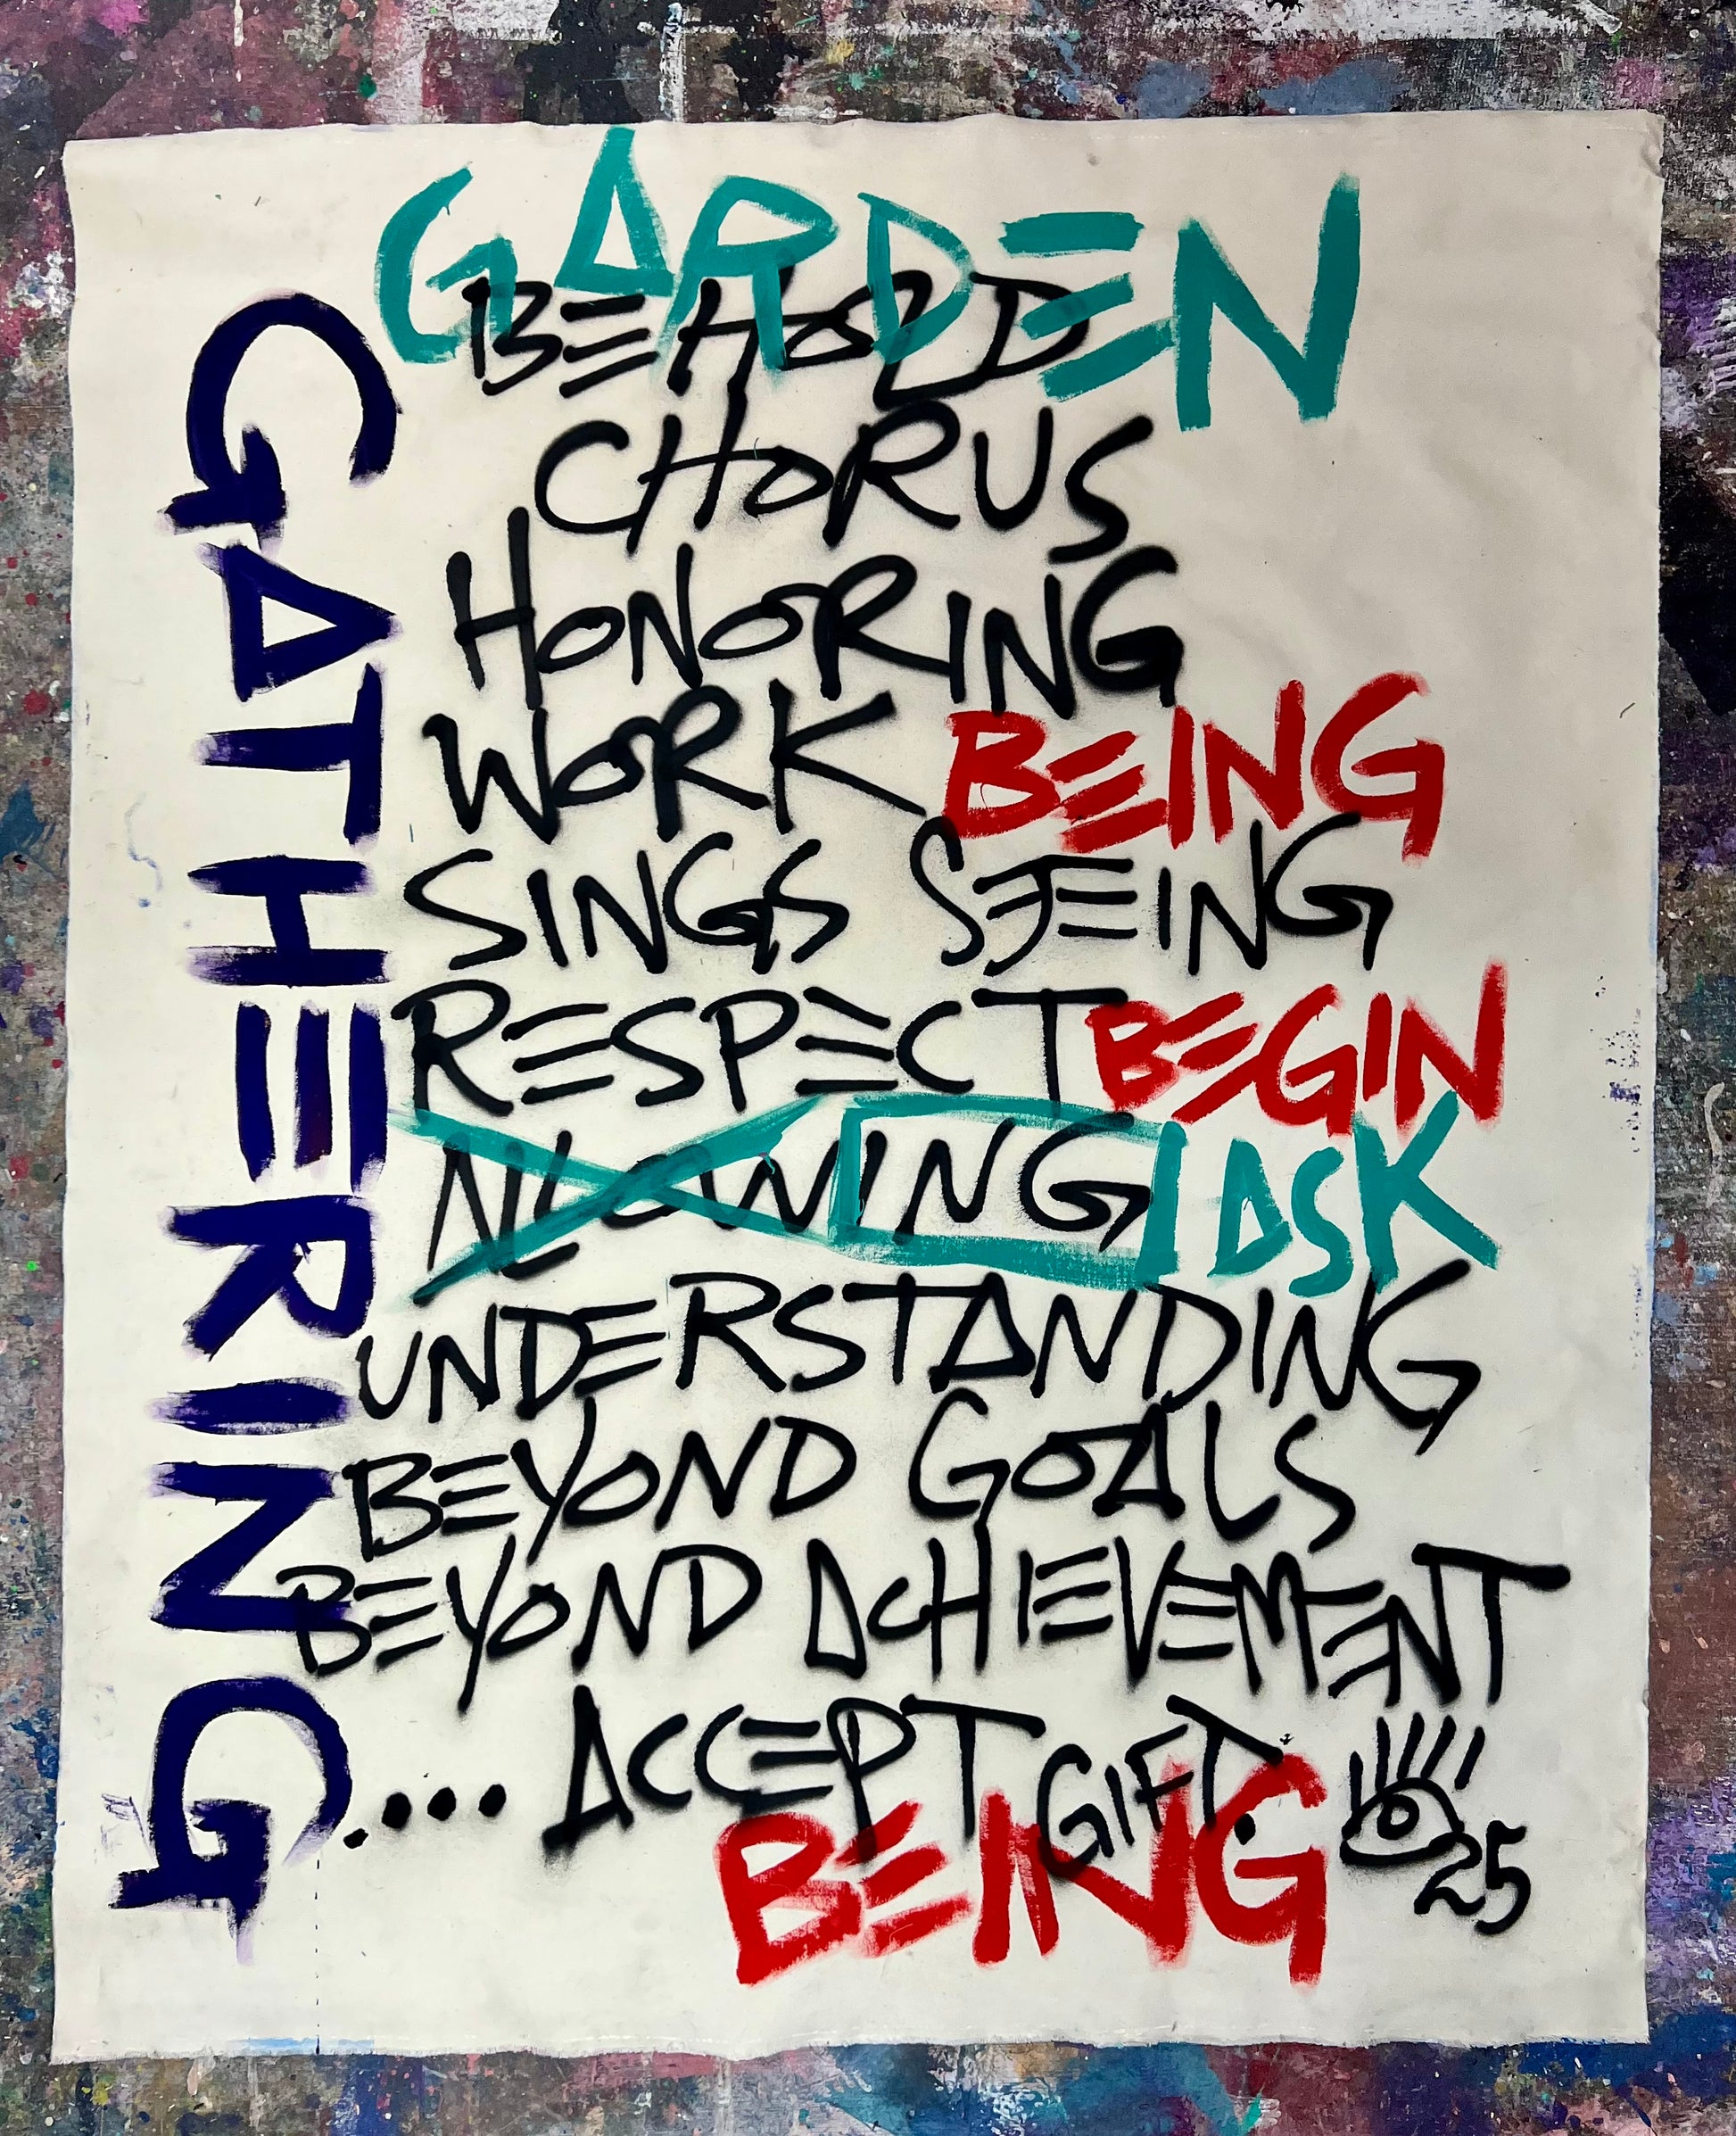 GARDEN
BEHOLD
CHORUS
HONORING
WORK BEING
SINGS SEEING
RESPECT BEGIN
ALLOWING I ASK
UNDERSTANDING
BEYOND GOALS
BEYOND ACHIEVEMENT
.... ACCEPT GIFT.
BEING
25
GATHERING